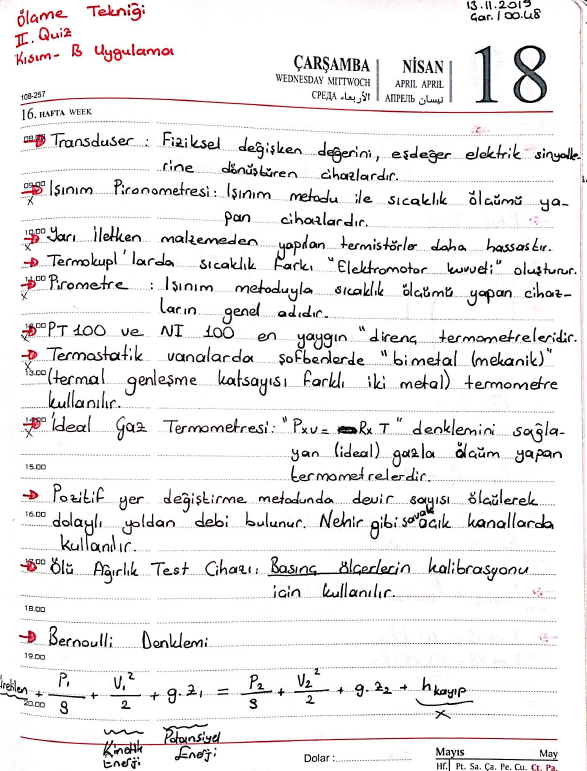 Ölçme Tekniği
II. Quiz
Kısım- B Uygulama
13.11.2019
Çar. / 00.48
ÇARŞAMBA
WEDNESDAY MITTWOCH
СРЕДА الأربعاء
NİSAN
APRIL APRIL
АПРЕЛЬ نيسان
18
108-257
16. HAFTA WEEK
Transduser : Fiziksel değişken değerini, eşdeğer elektrik sinyalle-
rine dönüştüren cihazlardır.
09.00 Işınım Piranometresi: Işınım metodu ile sıcaklık ölçümü ya-
x pan cihazlardır.
10.00 Yarı iletken malzemeden yapılan termistörler daha hassastır.
Termokupl'larda sıcaklık farkı "Elektromotor kuvveti" oluşturur.
11.00 Pirometre : Işınım metoduyla sıcaklık ölçümü yapan cihaz-
x ların genel adıdır.
12.00 PT 100 ve NI 100 en yaygın "direnç termometreleridir.
x Termostatik vanalarda şofbenlerde "bimetal (mekanik)"
13.00 (termal genleşme katsayısı farklı iki metal) termometre
kullanılır.
14.00 İdeal Gaz Termometresi: "Pxv = Rx T" denklemini sağla-
x yan (ideal) gazla ölçüm yapan
15.00 termometrelerdir.
Pozitif yer değiştirme metodunda devir sayısı ölçülerek
16.00 dolaylı yoldan debi bulunur. Nehir gibi savak açık kanallarda
kullanılır.
17.00 Ölü Ağırlık Test Cihazı: Basınç ölçerlerin kalibrasyonu
için kullanılır.
18.00
Bernoulli Denklemi
19.00
+ P₁/ρ + V₁²/2 + g.z₁ = P₂/ρ + V₂²/2 + g.z₂ + hkayıp
20.00
x
Kinetik Enerji
Potansiyel Enerji
Dolar :
Mayıs May
Hf. Pt. Sa. Ça. Pe. Cu. Ct. Pa.